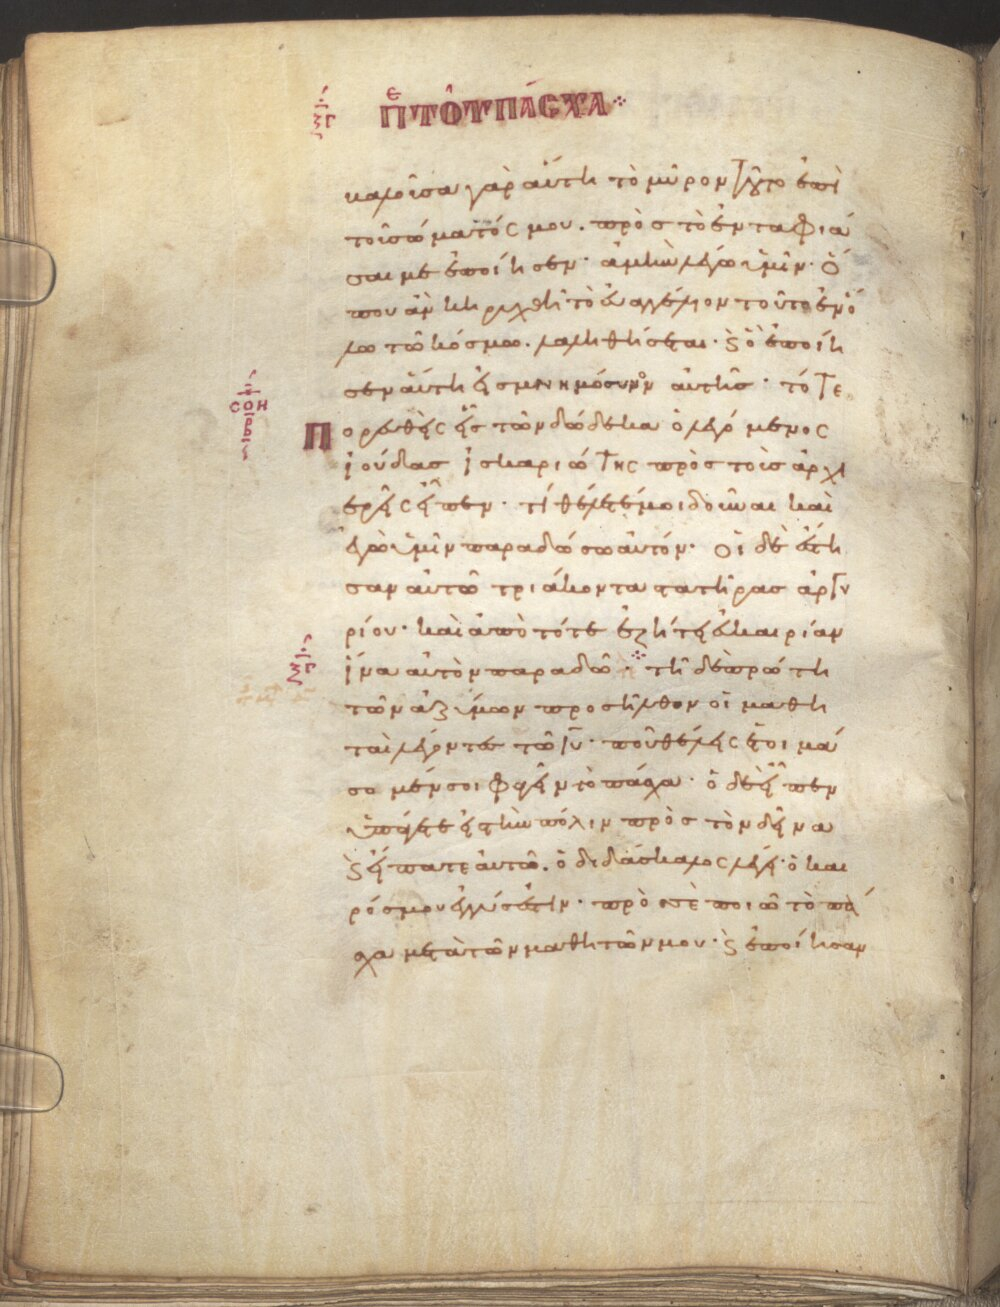 ξγ ΠΕ ΤΟΥ ΠΑΣΧΑ
βαλοῦσα γὰρ αὕτη τὸ μύρον τοῦτο ἐπὶ
τοῦ σώματός μου. πρὸς τὸ ἐνταφιά
σαι με ἐποίησεν· ἀμὴν λέγω ὑμῖν· ὅ
που ἂν κηρυχθῇ τὸ εὐαγγέλιον τοῦτο ἐν ὅ
λω τῶ κόσμω. λαληθήσεται· καὶ ὃ ἐποίη
σεν αὕτη εἰς μνημόσυνον αὐτῆς· τότε
Πορευθεὶς εἷς τῶν δώδεκα ὁ λεγόμενος
ἰούδας ἰσκαριώτης πρὸς τοὺς ἀρχι
ερεῖς εἶπεν· τί θέλετέ μοι δοῦναι καὶ
ἐγὼ ὑμῖν παραδώσω αὐτόν· οἱ δὲ ἔστη
σαν αὐτῶ τριάκοντα στατῆρας ἀργυ
ρίου· καὶ ἀπὸ τότε ἐζήτει εὐκαιρίαν
ἵνα αὐτὸν παραδῶ· τῆ δὲ πρώτη
τῶν ἀζύμων προσῆλθον οἱ μαθη
ταὶ λέγοντες τῶ ιυ· ποῦ θέλεις ἑτοιμά
σομέν σοι φαγεῖν τὸ πάσχα· ὁ δὲ εἶπεν
ὑπάγετε εἰς τὴν πόλιν πρὸς τὸν δεῖνα
καὶ εἴπατε αὐτῶ. ὁ διδάσκαλος λέγει· ὁ και
ρός μου ἐγγύς ἐστιν· πρὸς σὲ ποιῶ τὸ πά
σχα μετὰ τῶν μαθητῶν μου· καὶ ἐποίησαν